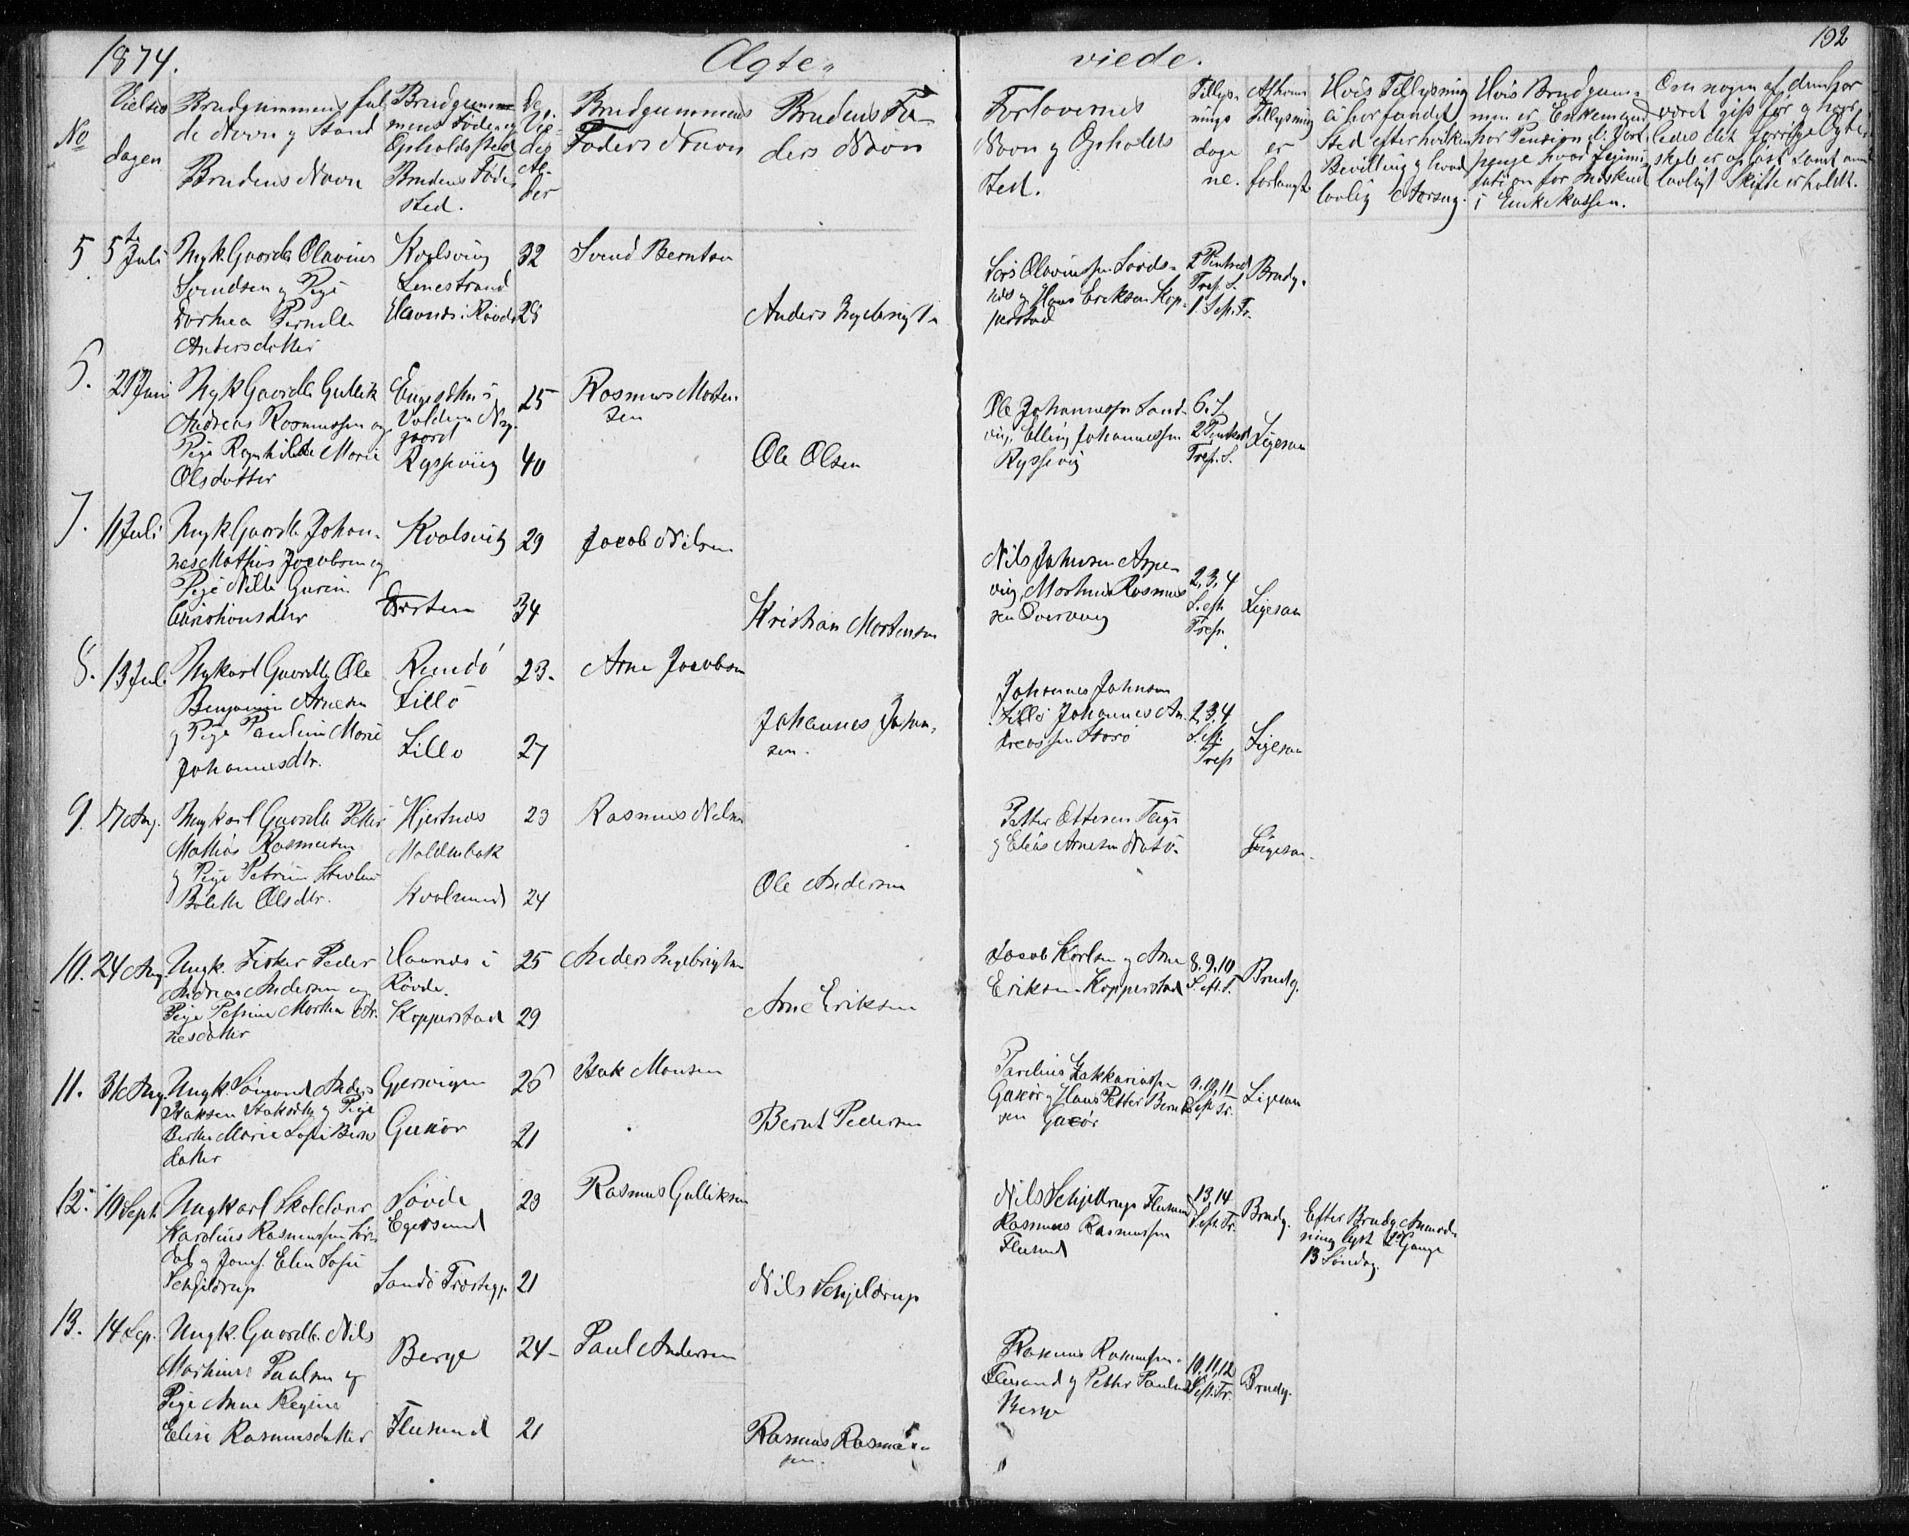 1874.
Ægte-
viede.
192
No
Vielses
dagen
Brudgummens ful
de Navn og Stand
Brudens Navn
Brudgum-
mens Føde og
Opholdssted
Brudens Føde
sted.
De-
res
Al-
der
Brudgummens
Faders Navn
Brudens Fa-
ders Navn
Forlovernes
Navn og Opholds
sted.
Tillys-
nings
dage
ne.
Af hvem
Tillysning
er
forlangt
Hvis Tillysning
ei har fundet
Sted efter hvilken
Bevilling og hvad
lovlig Aarsag.
Hvis Brudgum-
men er Enkemand
hvad
for Indskud
i Enkekassen.
Om nogen af dem har
været gift før og hvor-
ledes det forrige Ægte-
skab er opløst samt om
lovligt Skifte er holdt.
5
5te Juli
Ungk. Gaardb. Olavius
Svendsen og Pige
Dorthea Pernille
Andersdatter
Kvalsvig
Lenestrand
Haunæs i Røvde
32
28
Svend Berntsen
Anders Ingebrigts
Lars Olavissen
og Hans Eriksen Kop-
perstad
2 Pintsed
Tref. S.
1 S. e. Tr.
Brudg.
6.
21 Juni
Ungk Gaardb. Gullik
Andreas Rasmussen og
Pige Ragnhilde Marie
Olsdatter
Volden
gaard
Ryssevig
25
40
Rasmus Morten
sen
Ole Olsen
Ole Johannessen Sand-
vig, Elling Johannessen
Ryssevig
6. S.
2 Pintsed
Tref. S.
Ligesaa
7.
11 Juli
Ungk Gaardb. Johan-
nes Mathias Jacobsen og
Pige Nille Gurine
Christiansdtr
Kvalsvig
29
34
Jacob Nilsen
Kristian Mortensen
Nils Johnsen Aspe
vig, Morten Rasmus
sen
2, 3, 4
S. eft
Tref.
Ligesaa
8.
13 Jul.
Ungkarl Gaardb. Ole
Benjamin Arnesen
og Pige Pauline Marie
Johannesdtr.
Rundø
Lillø
Lillø
23.
27
Arne Jacobsen
Johannes Johan-
sen.
Johannes Johnsen
Lillø Johannes An-
dreassen Storø
2, 3, 4
S. eft.
Tref
Ligesaa
9.
17 Aug.
Ungkarl Gaardb. Petter
Mathias Rasmussen
og Pige Petrine
Bolette Olsdtr.
Hjertnæs
Moldenbak
Kvalsund
23
24
Rasmus Nilsen
Ole Andersen
Petter Ottesen Teige
og Elias Arnesen Notø
Ligesaa
10.
24 Aug
Ungk. Fisker Peder
Andreas Andersen og
Pige Petrine Marthea Ar-
nesdatter
Haunæs i
Røvde.
Kopperstad
25
29
Anders Ingebrigtsen
Arne Eriksen
Jacob Karlsen og Arne
Eriksen Kopperstad
8. 9. 10
S. eft. T.
Brudg.
11.
31 Aug
Ungk. Simond Anders
Isaksen og Pige
Berthe Marie Sofie Bernt
datter
Gjerdvigen
Guxør
26
21
Isak Monsen
Bernt Pedersen
Parelius Zakkariassen
Guxør og Hans Petter Bernt
sen Guxør
9. 10, 11
S. eft Tr.
Ligesaa
12.
10 Sept
Ungkarl Skolelærer
Karolius Rasmussen
og Jomf. Elen Sofie
Schjeldrup
Søvde
Egersund
Sandø Præstegj.
23
21
Rasmus Gulliksen
Nils Schjeldrup
Nils Schjeldrup Flusund
Rasmus Rasmussen
Flusund
13, 14
S. eft Tr.
Brudg.
Efter Brudg. Anmod-
ning lyst 2 Gange
13 Søndag
13.
14 Sep.
Ungk. Gaardb. Nils
Martinus Paulsen og
Pige Anne Regine
Elise Rasmusdatter
Berge
Flusund
24
21
Paul Andersen
Rasmus Rasmus-
sen.
Rasmus Rasmussen
Flusund og Petter Paulsen
Berge
10, 11, 12
S. eft. Tr.
Brudg.